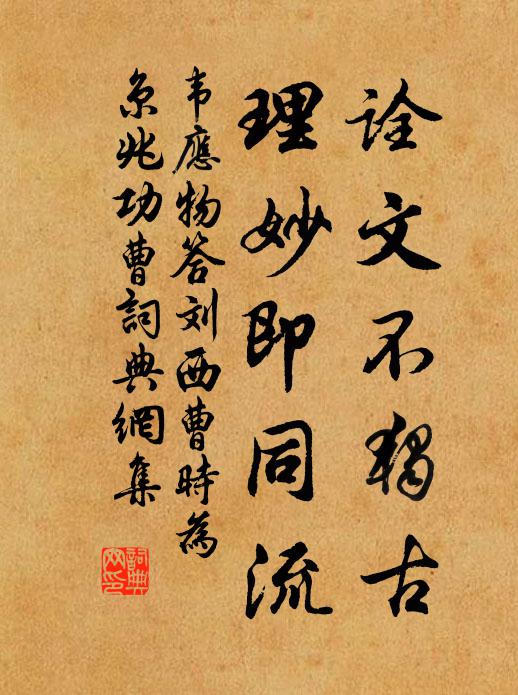 詮文不獨古
理妙即同流
韦應物答刘西曹時為
京兆功曹詞典網集
詞典
网印